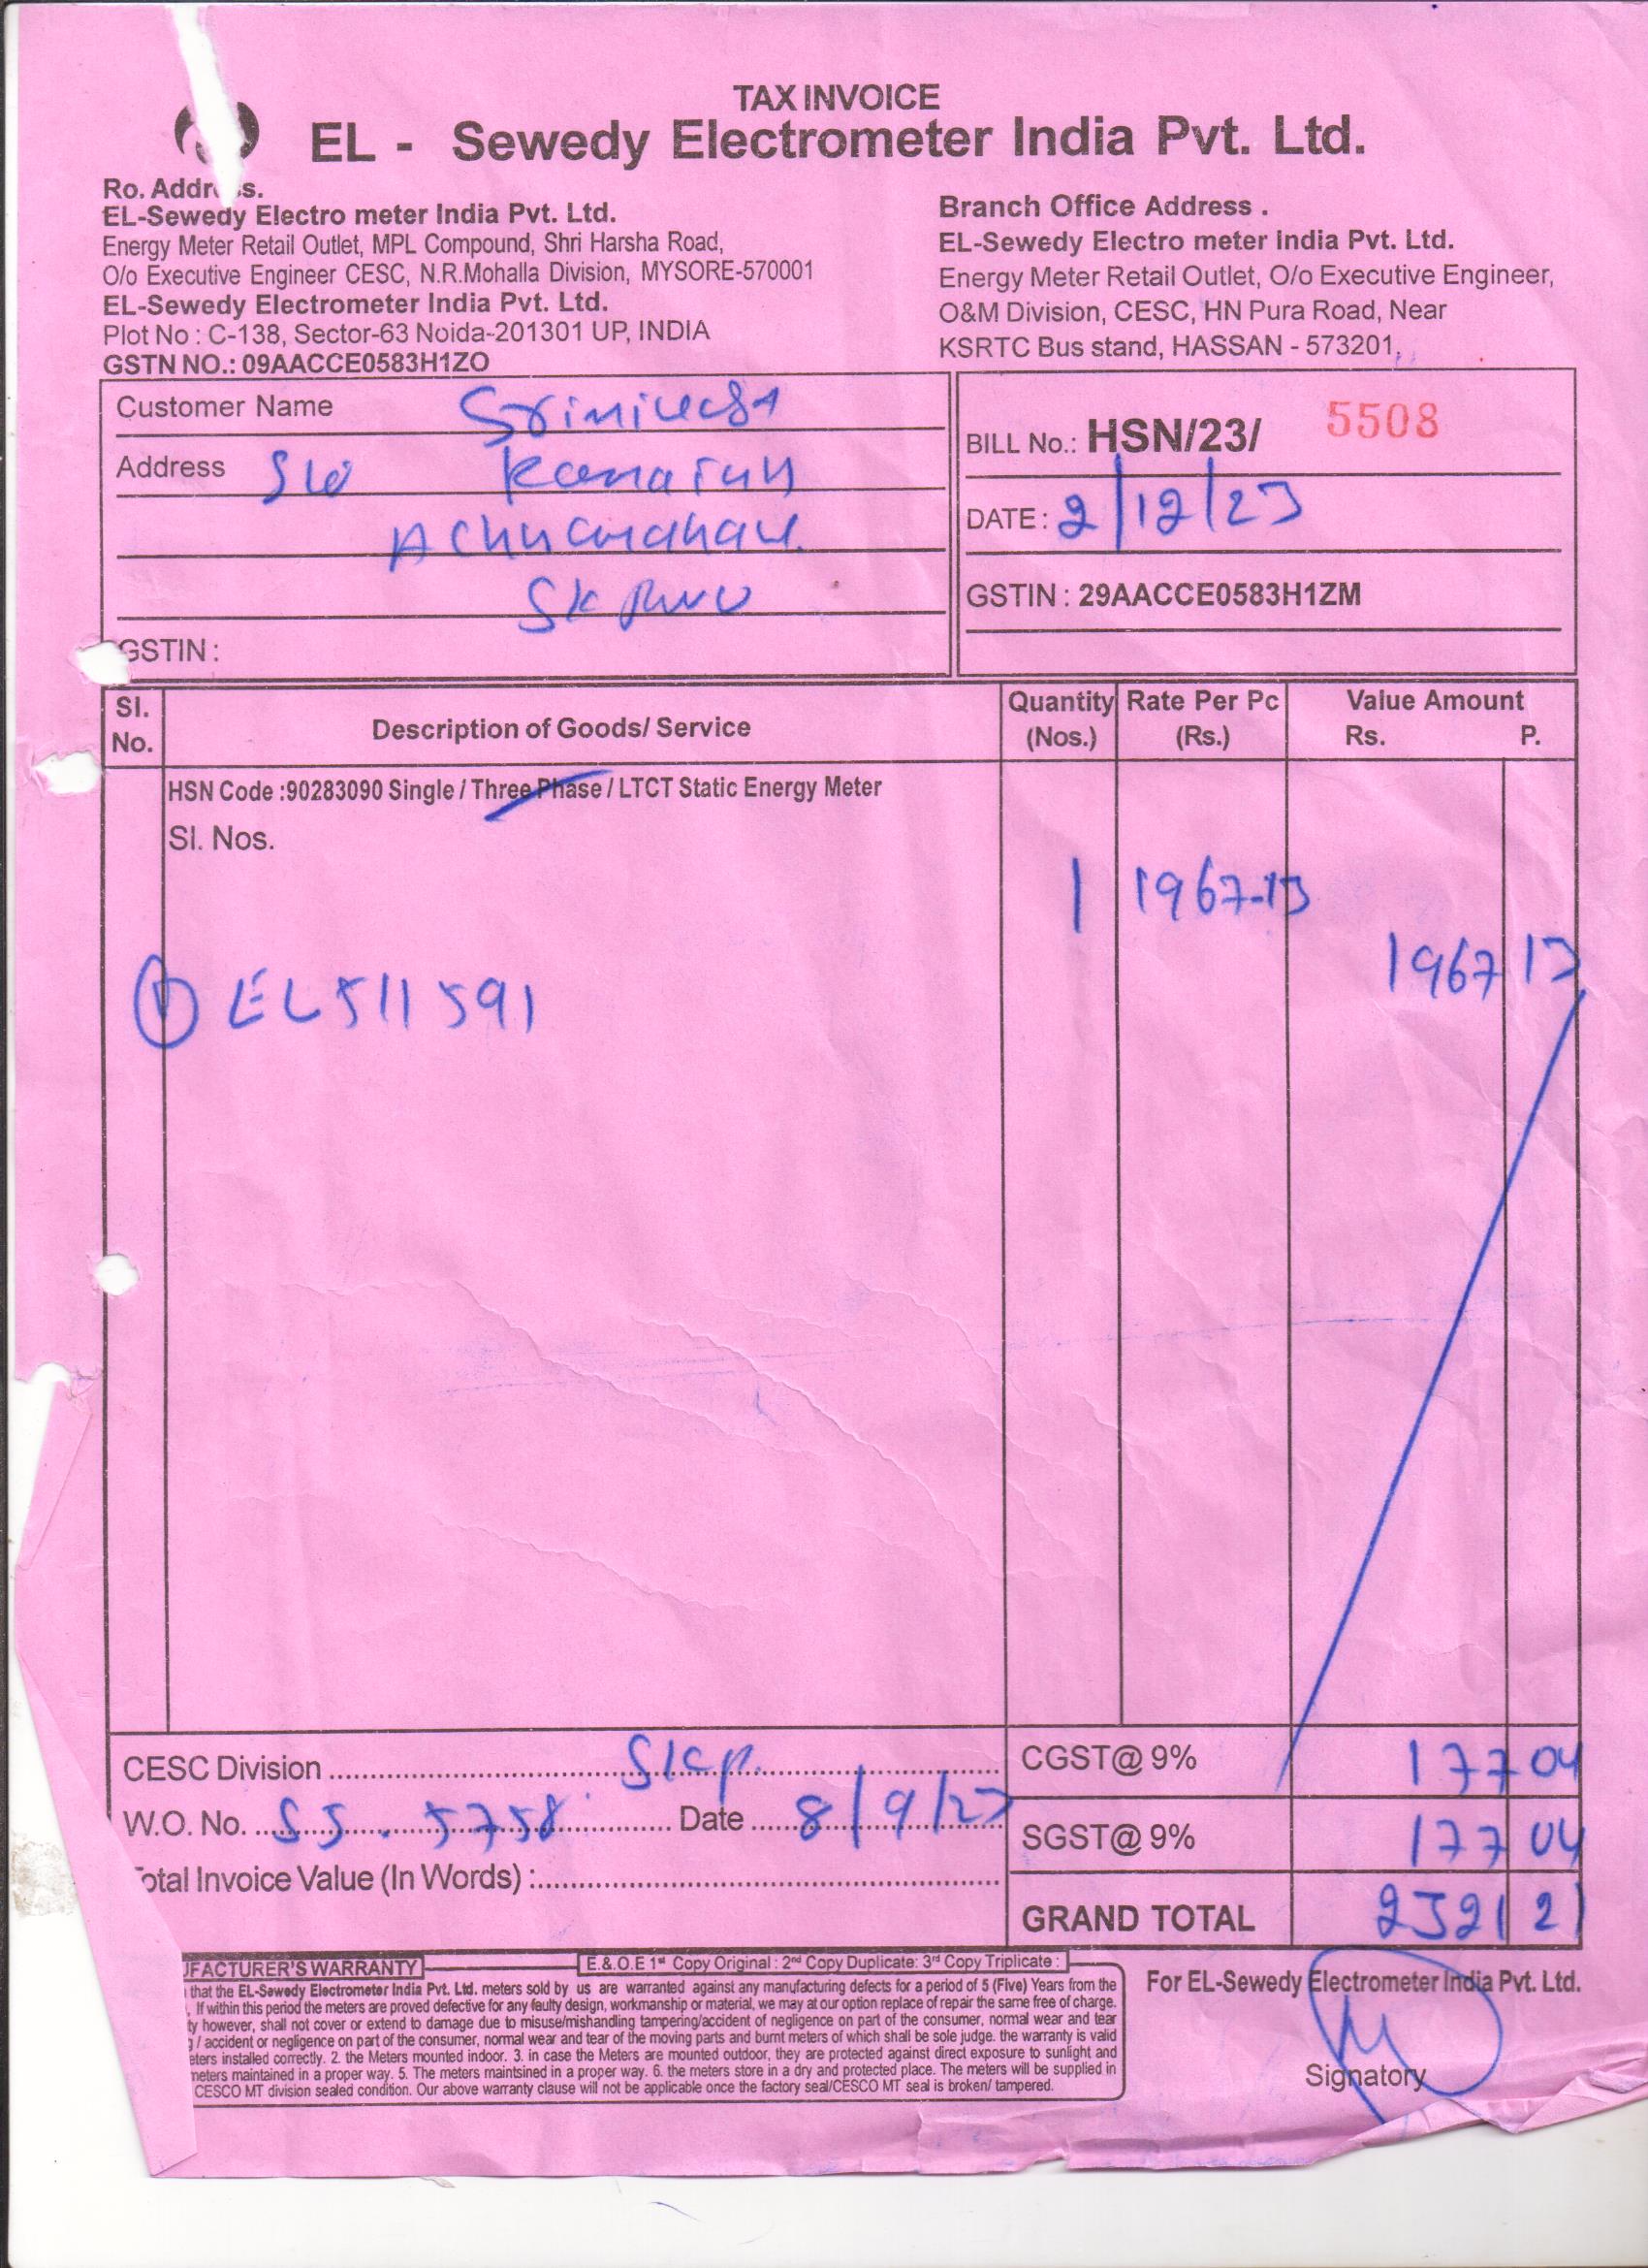 TAX INVOICE
EL - Sewedy Electrometer India Pvt. Ltd.
Ro. Addr s.
EL-Sewedy Electro meter India Pvt. Ltd.
Energy Meter Retail Outlet, MPL Compound, Shri Harsha Road,
O/o Executive Engineer CESC, N.R.Mohalla Division, MYSORE-570001
EL-Sewedy Electrometer India Pvt. Ltd.
Plot No : C-138, Sector-63 Noida-201301 UP, INDIA
GSTN NO.: 09AACCE0583H1ZO
Branch Office Address .
EL-Sewedy Electro meter India Pvt. Ltd.
Energy Meter Retail Outlet, O/o Executive Engineer,
O&M Division, CESC, HN Pura Road, Near
KSRTC Bus stand, HASSAN - 573201,
Customer Name
Address S/o
GSTIN :
BILL No.: HSN/23/ 5508
DATE : 2/12/23
GSTIN : 29AACCE0583H1ZM
Sl. No. Description of Goods/ Service Quantity (Nos.) Rate Per Pc (Rs.) Value Amount Rs. P.
HSN Code :90283090 Single / Three Phase / LTCT Static Energy Meter
Sl. Nos.
1 1967-13
1967 13
1 EL511591
CESC Division Skp.
W.O. No. SS. 5758 Date 8/9/23
otal Invoice Value (In Words) :
CGST@ 9% 177 04
SGST@ 9% 177 04
GRAND TOTAL 2321 21
UFACTURER'S WARRANTY
E.& O.E 1st Copy Original : 2nd Copy Duplicate: 3rd Copy Triplicate :
that the EL-Sewedy Electrometer India Pvt. Ltd. meters sold by us are warranted against any manufacturing defects for a period of 5 (Five) Years from the
. If within this period the meters are proved defective for any faulty design, workmanship or material, we may at our option replace of repair the same free of charge.
ty however, shall not cover or extend to damage due to misuse/mishandling tampering/accident of negligence on part of the consumer, normal wear and tear
g / accident or negligence on part of the consumer, normal wear and tear of the moving parts and burnt meters of which shall be sole judge. the warranty is valid
eters installed correctly. 2. the Meters mounted indoor. 3. in case the Meters are mounted outdoor, they are protected against direct exposure to sunlight and
neters maintained in a proper way. 5. The meters maintsined in a proper way. 6. the meters store in a dry and protected place. The meters will be supplied in
CESCO MT division sealed condition. Our above warranty clause will not be applicable once the factory seal/CESCO MT seal is broken/ tampered.
For EL-Sewedy Electrometer India Pvt. Ltd.
Signatory